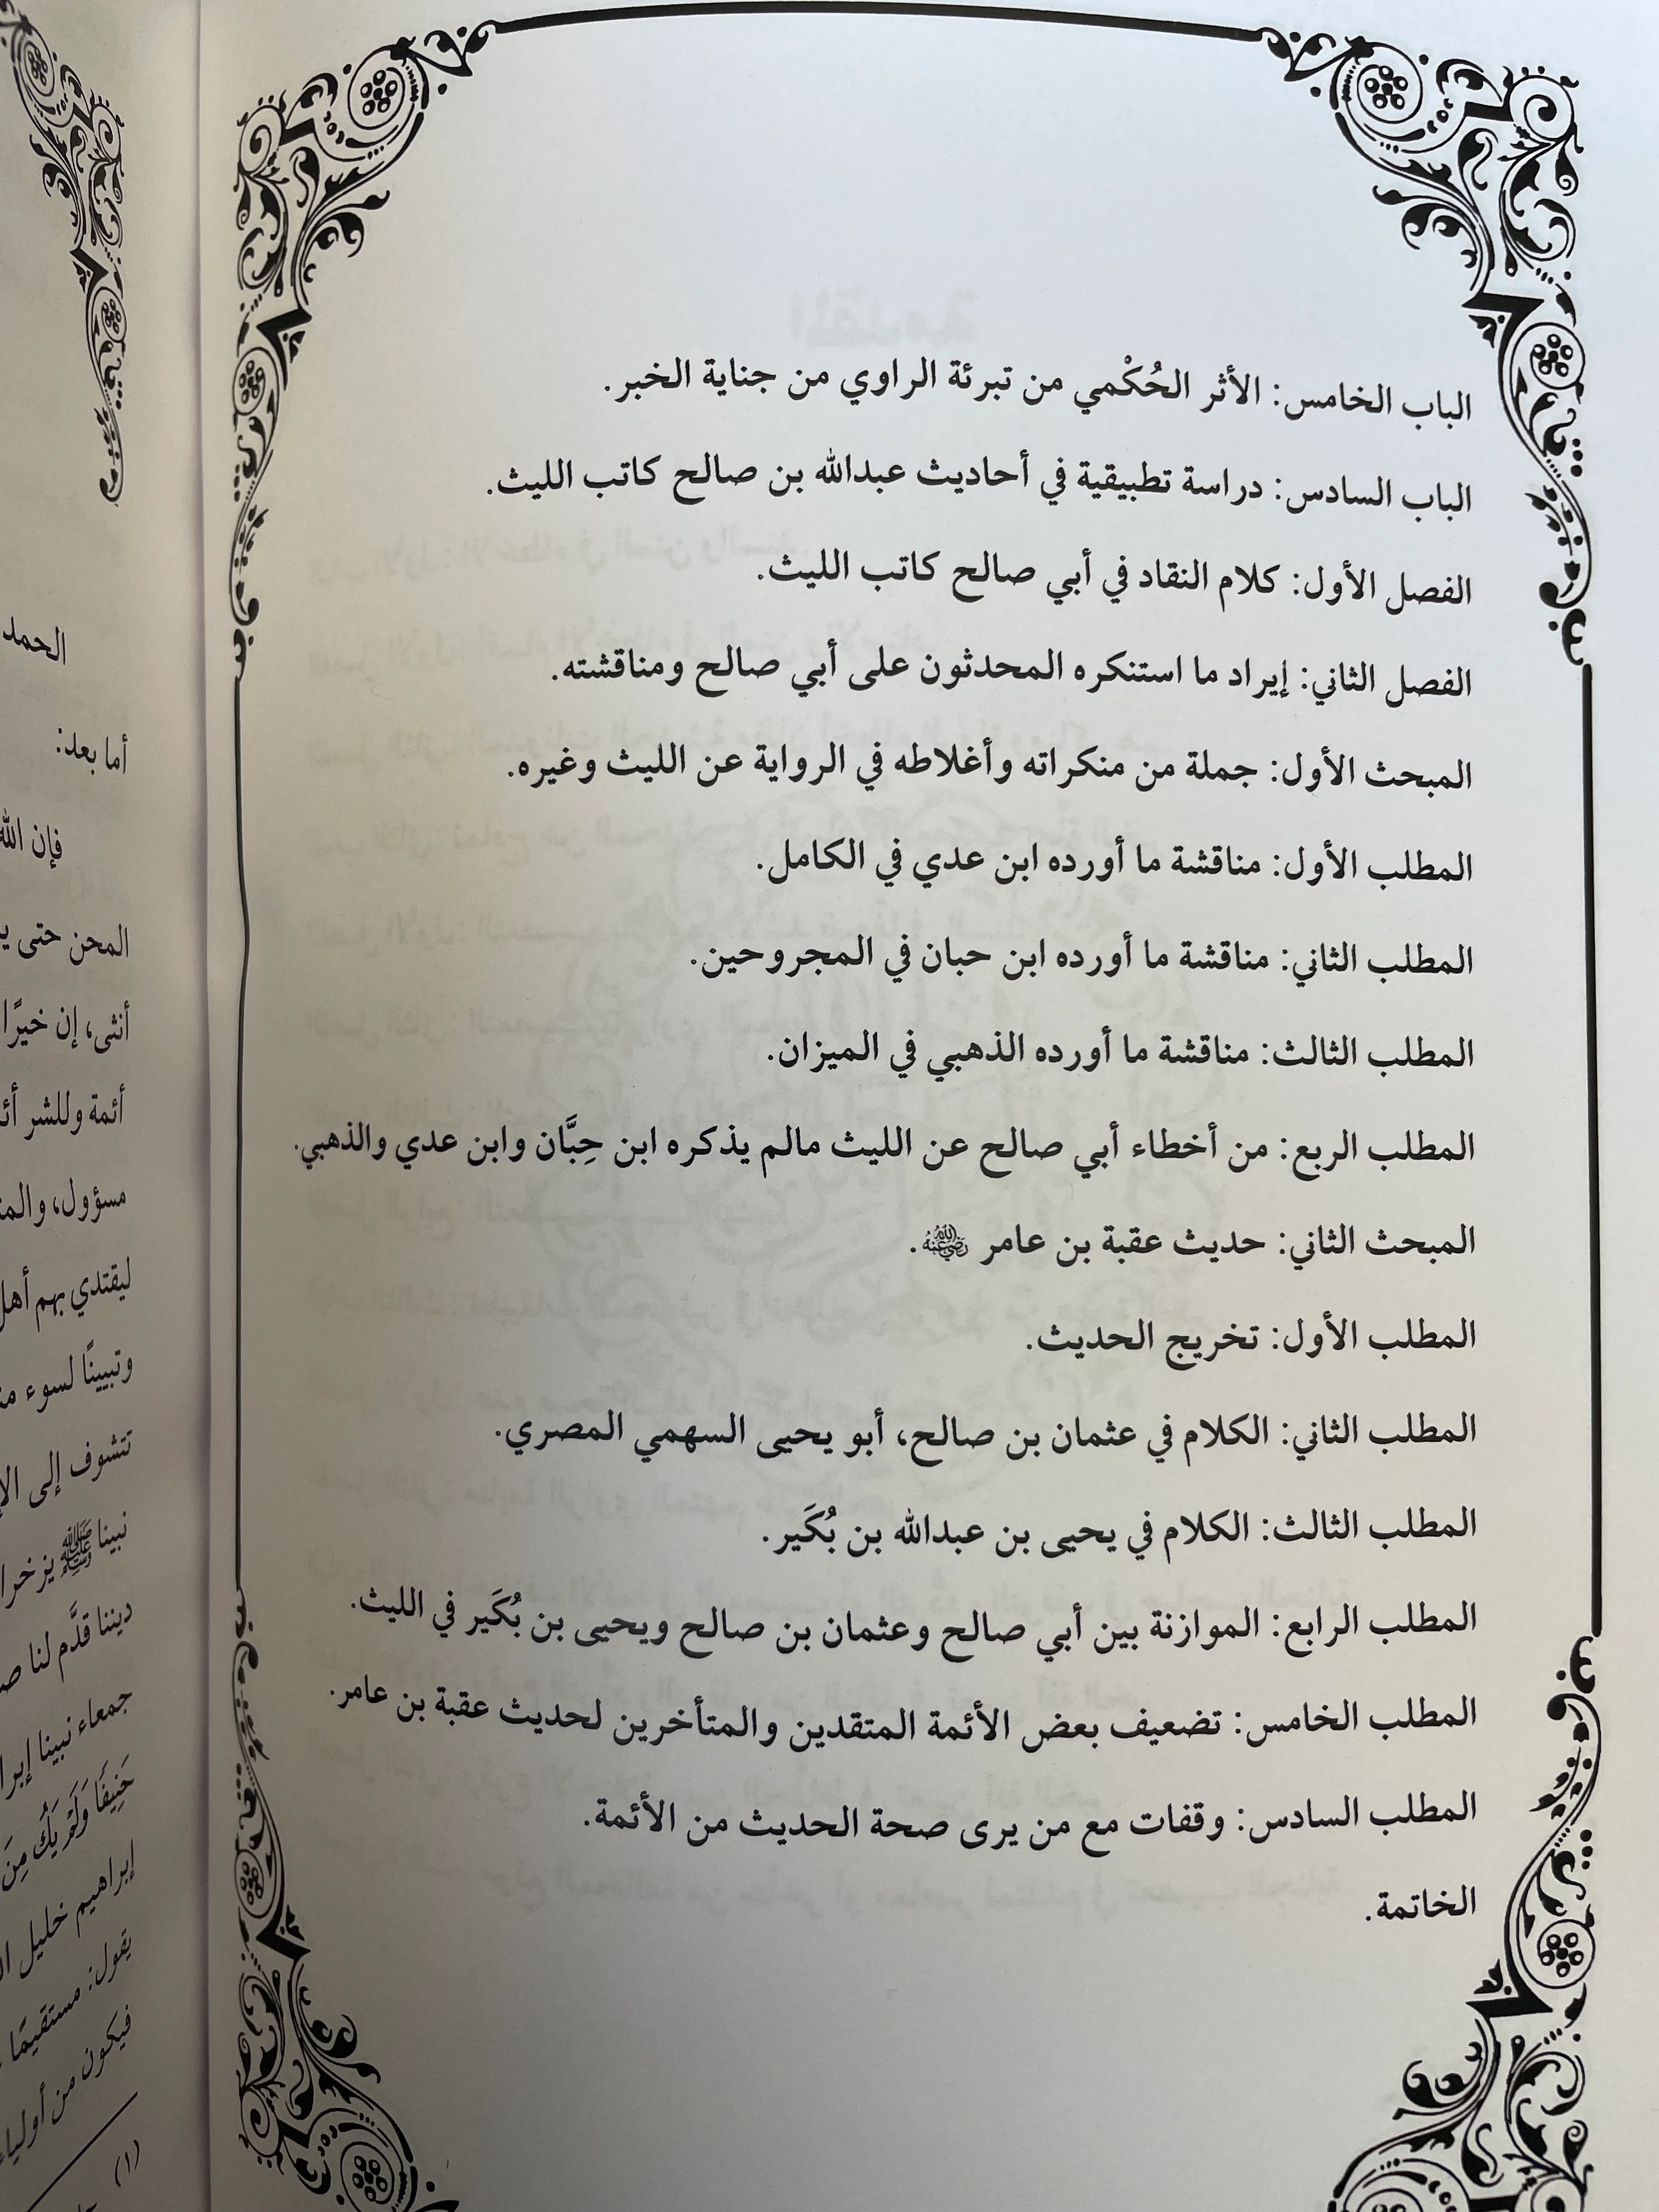 الباب الخامس: الأثر الحُكْمي من تبرئة الراوي من جناية الخبر.
الباب السادس: دراسة تطبيقية في أحاديث عبدالله بن صالح كاتب الليث.
الفصل الأول: كلام النقاد في أبي صالح كاتب الليث.
الفصل الثاني: إيراد ما استنكره المحدثون على أبي صالح ومناقشته.
المبحث الأول: جملة من منكراته وأغلاطه في الرواية عن الليث وغيره.
المطلب الأول: مناقشة ما أورده ابن عدي في الكامل.
المطلب الثاني: مناقشة ما أورده ابن حبان في المجروحين.
المطلب الثالث: مناقشة ما أورده الذهبي في الميزان.
المطلب الربع: من أخطاء أبي صالح عن الليث مالم يذكره ابن حِبَّان وابن عدي والذهبي.
المبحث الثاني: حديث عقبة بن عامر رضي الله عنه.
المطلب الأول: تخريج الحديث.
المطلب الثاني: الكلام في عثمان بن صالح، أبو يحيى السهمي المصري.
المطلب الثالث: الكلام في يحيى بن عبدالله بن بُكَير.
المطلب الرابع: الموازنة بين أبي صالح وعثمان بن صالح ويحيى بن بُكَير في الليث.
المطلب الخامس: تضعيف بعض الأئمة المتقدين والمتأخرين لحديث عقبة بن عامر.
المطلب السادس: وقفات مع من يرى صحة الحديث من الأئمة.
الخاتمة.
الحمد
أما بعد:
فإن الله
المحن حتى
أنثى، إن خيرًا
أئمة وللشر
مسؤول،
ليقتدي بهم أهل
وتبيينًا لسوء
تتشوف إلى
نبينا ﷺ
ديننا قدَّم لنا
جمعاء نبينا
حَنِيفًا وَلَمْ يَكُ مِنَ
إبراهيم خليل
يقول: مستقيمًا
فيكون من
(١)